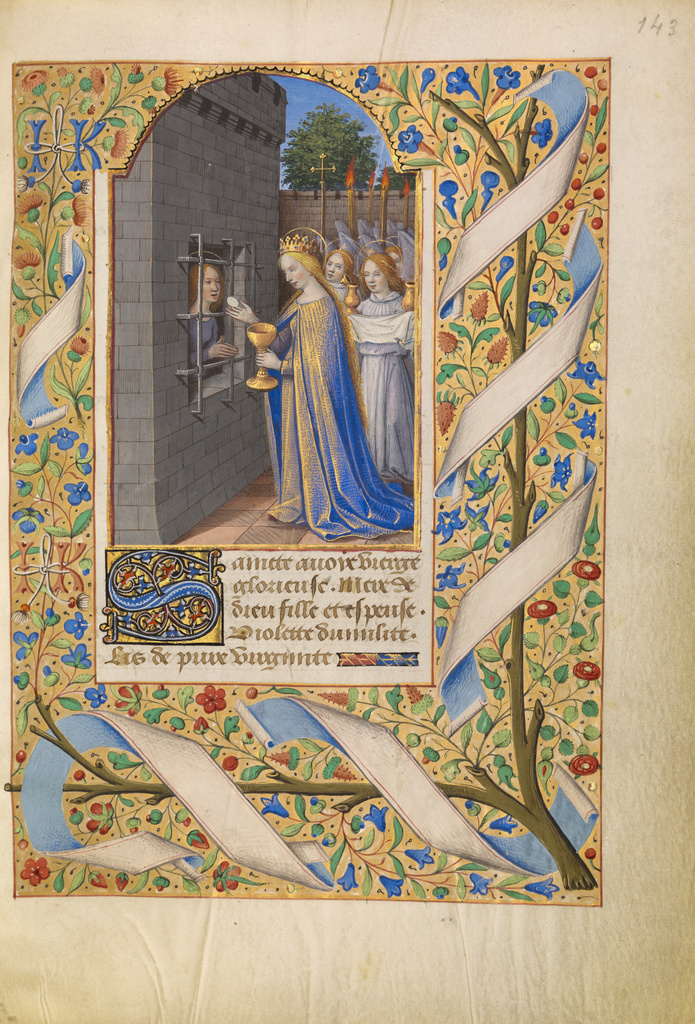 143
K
K
Saincte auoix vierge
glorieuse. Mere de
dieu fille et espeuse.
Violette dumilite.
Lis de pure virginite